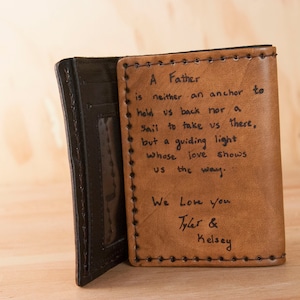 A Father
is neither an anchor to
hold us back nor a
sail to take us there,
but a guiding light
whose love shows
us the way.
We Love you
Tyler &
Kelsey